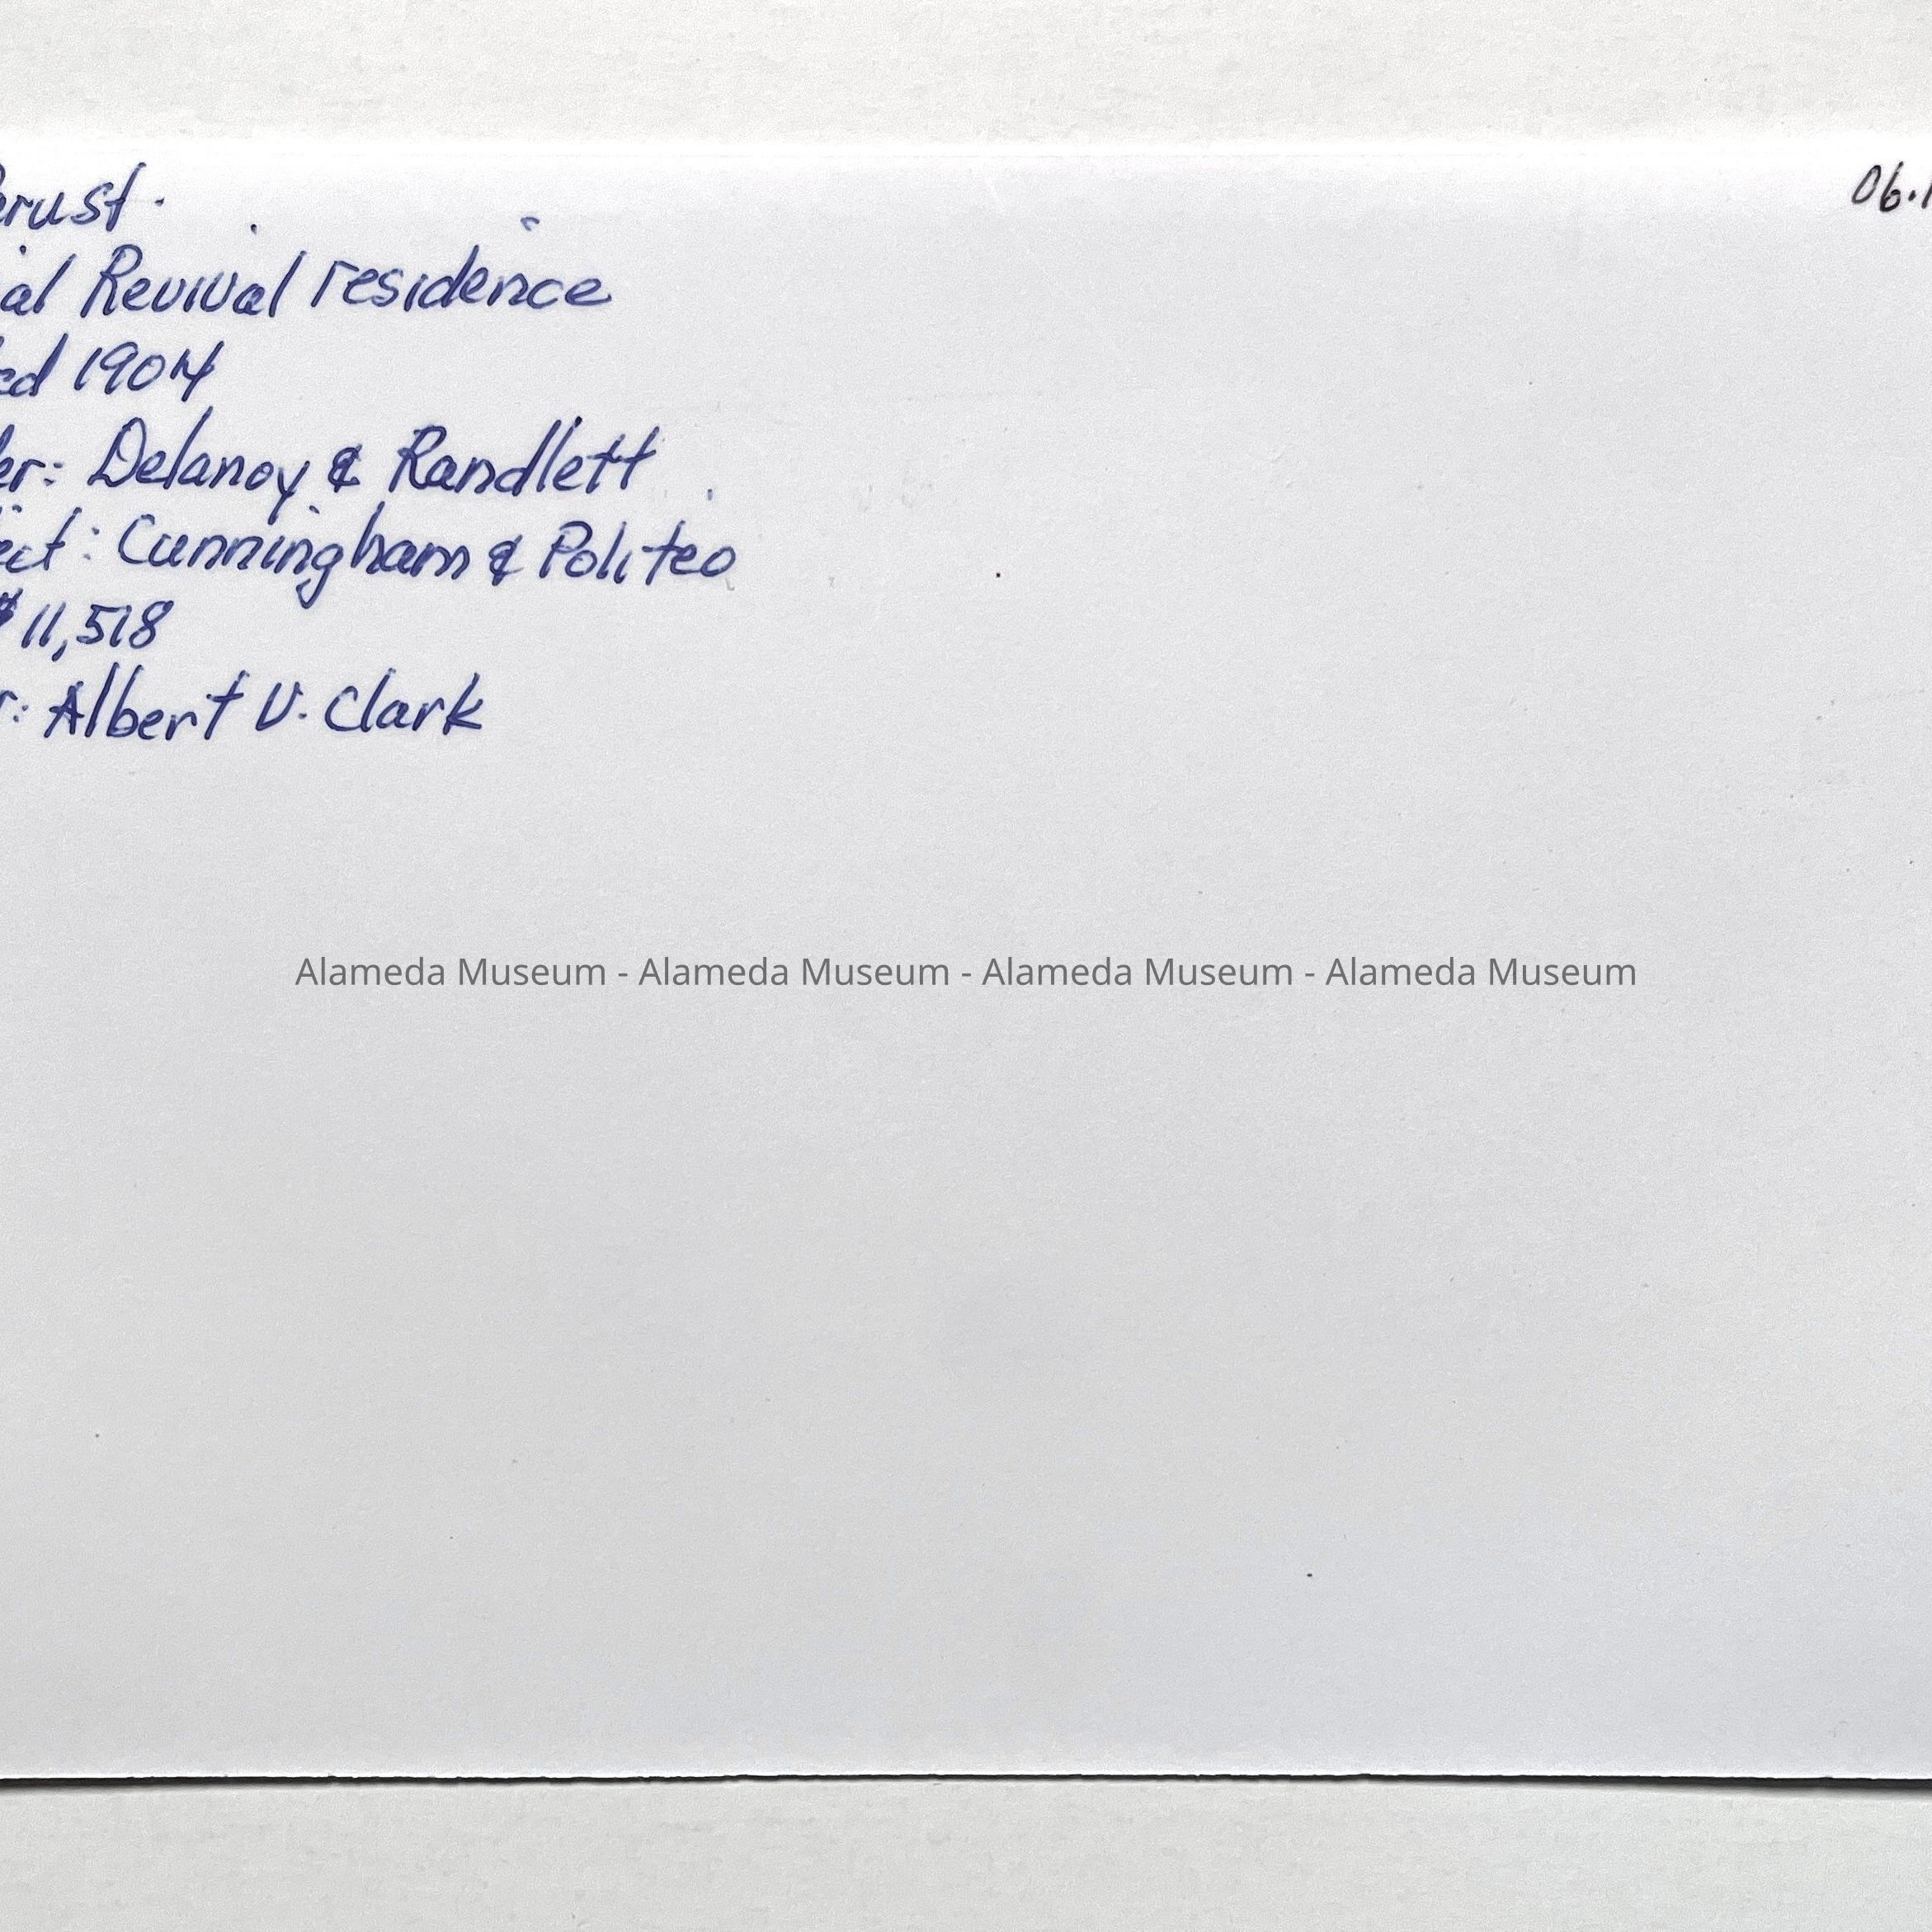 erust.
al Revival residence
ed 1904
er: Delanoy & Randlett
ect: Cunningham & Politeo
$11,518
r: Albert V. Clark
06.1
Alameda Museum - Alameda Museum - Alameda Museum - Alameda Museum